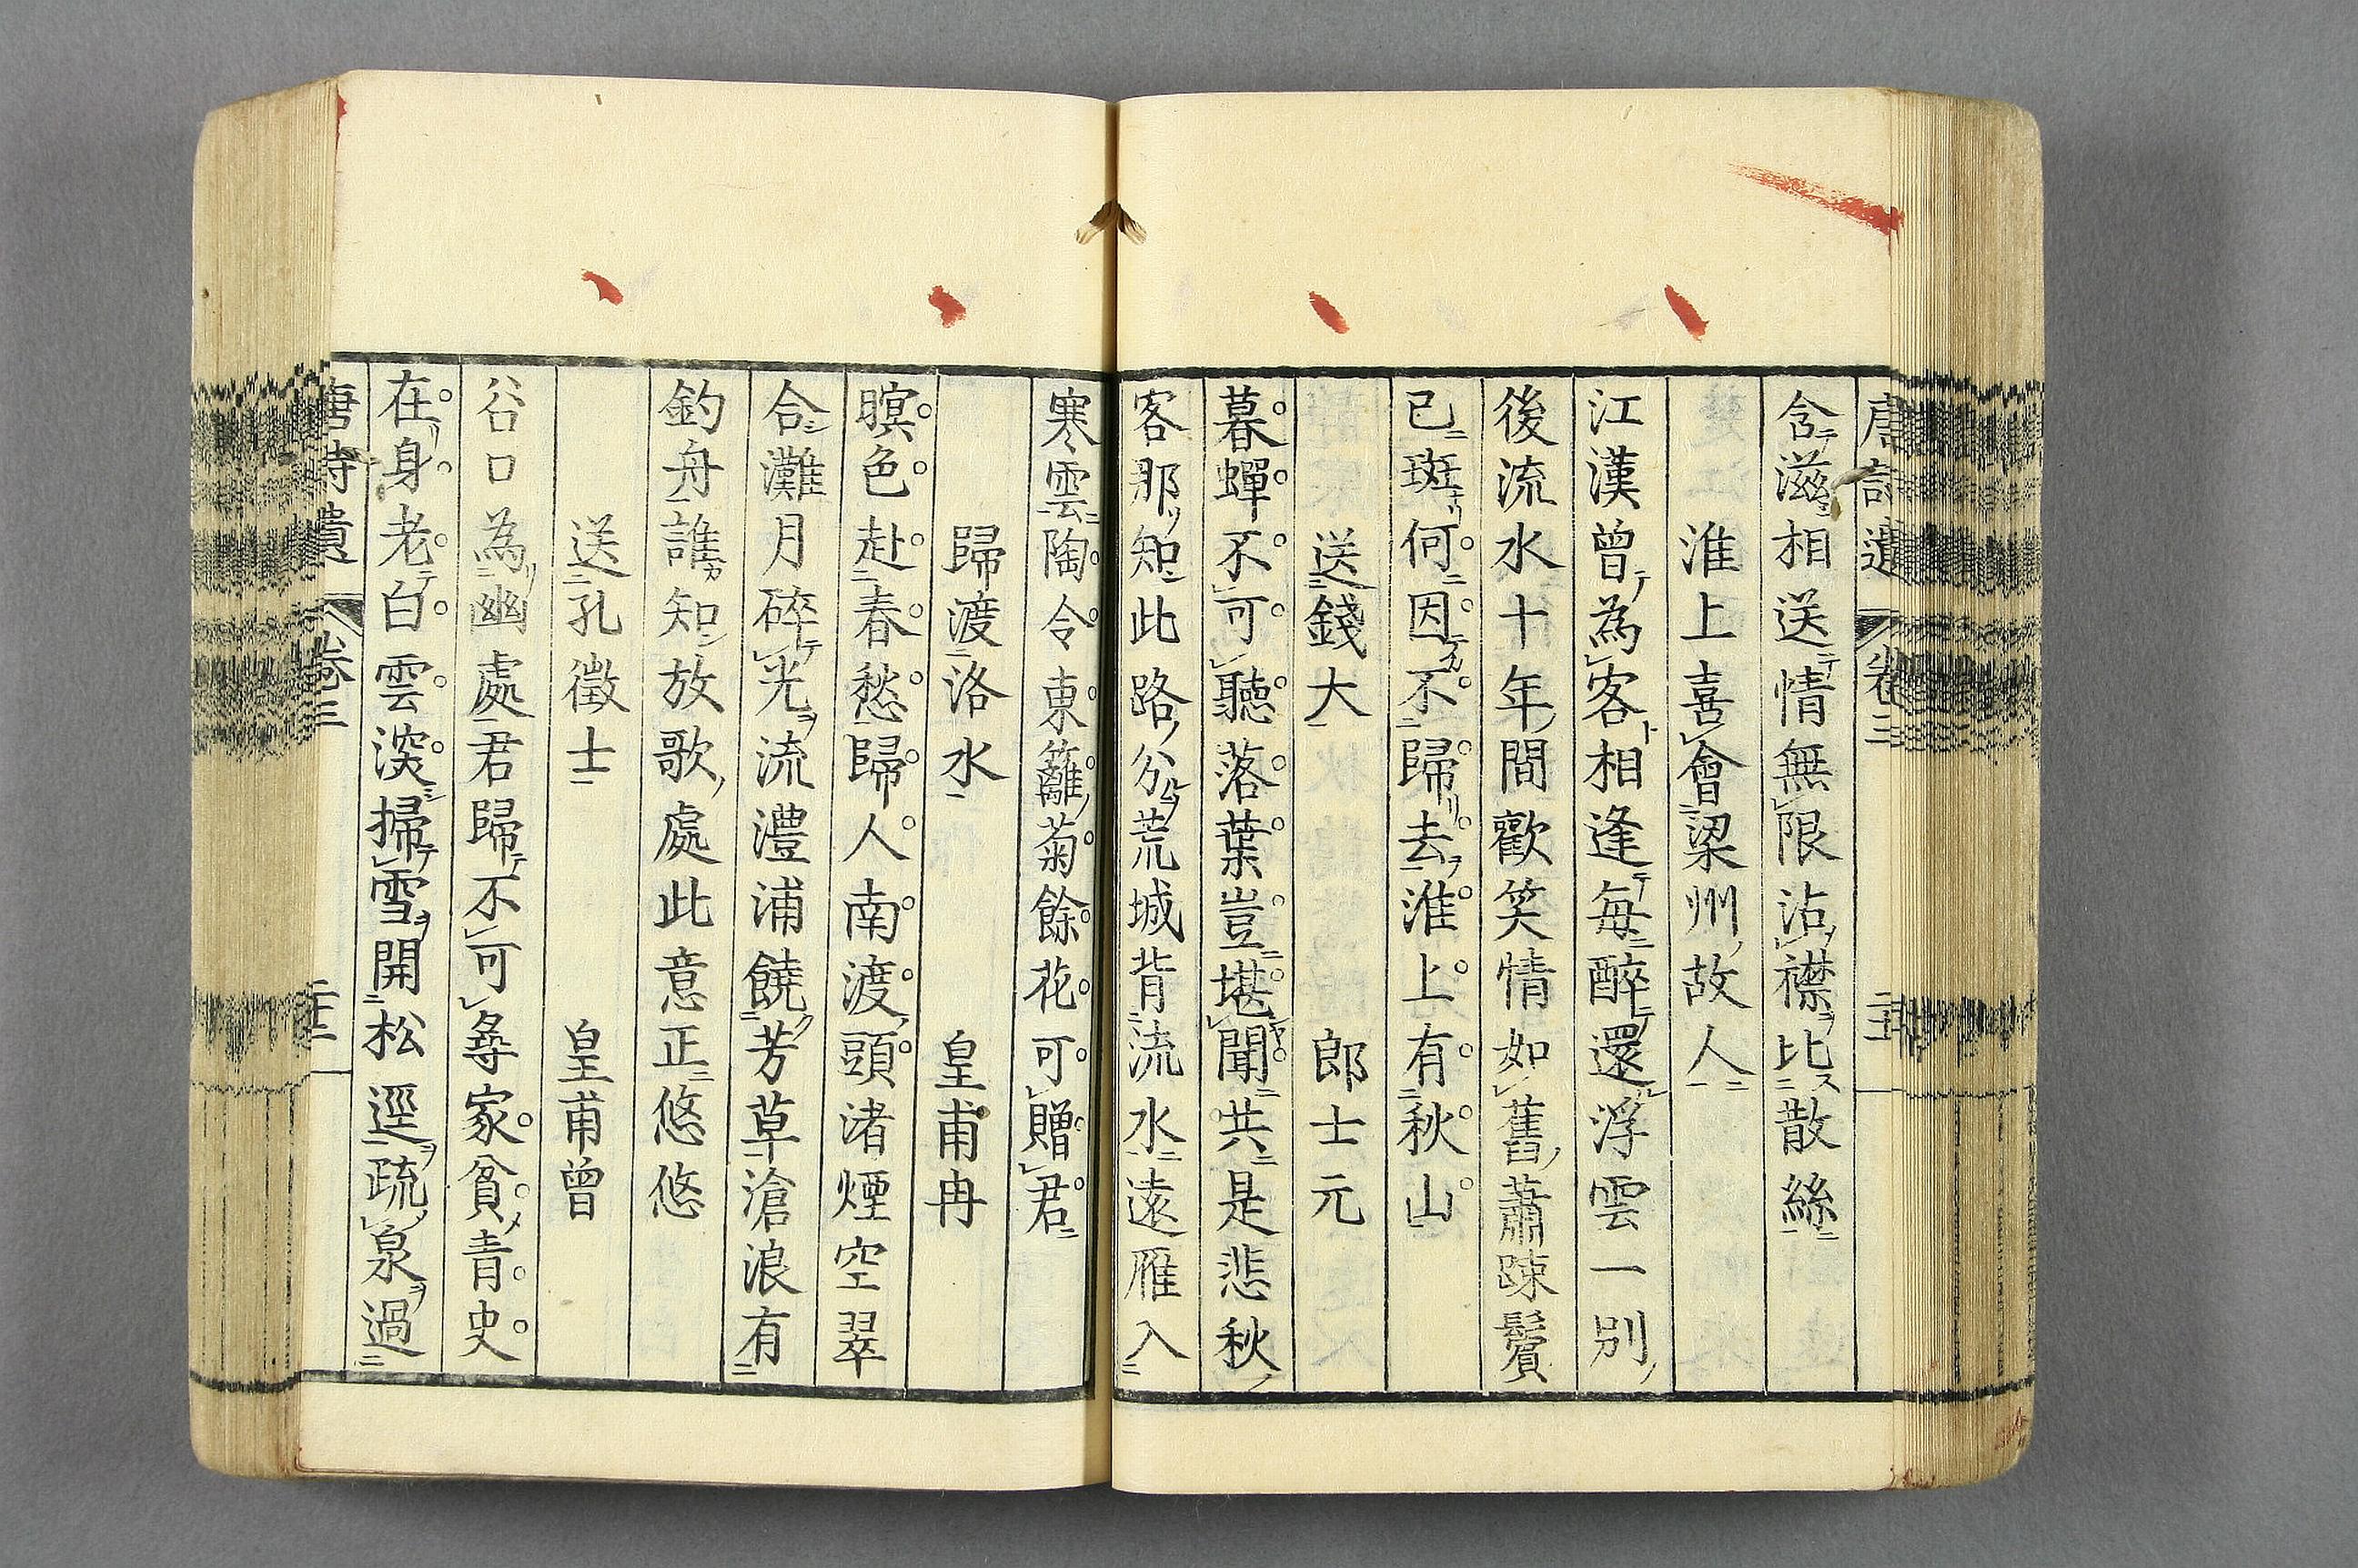 含滋相送情無限沾襟比散絲
淮上喜會梁州故人
江漢曾為客相逢每醉還浮雲一別
後流水十年間歡笑情如舊蕭踈鬢
已斑何因不歸去淮上有秋山
送錢大 郎士元
暮蟬不可聽落葉豈堪聞共是悲秋
客那知此路分荒城背流水遠雁入
寒雲陶令東籬菊餘花可贈君
歸渡洛水 皇甫冉
暝色赴春愁歸人南渡頭渚煙空翠
合灘月碎光流澧浦饒芳草滄浪有
釣舟誰知放歌處此意正悠悠
送孔徵士 皇甫曾
谷口為幽處君歸不可尋家貧青史
在身老白雲深掃雪開松逕疏泉過